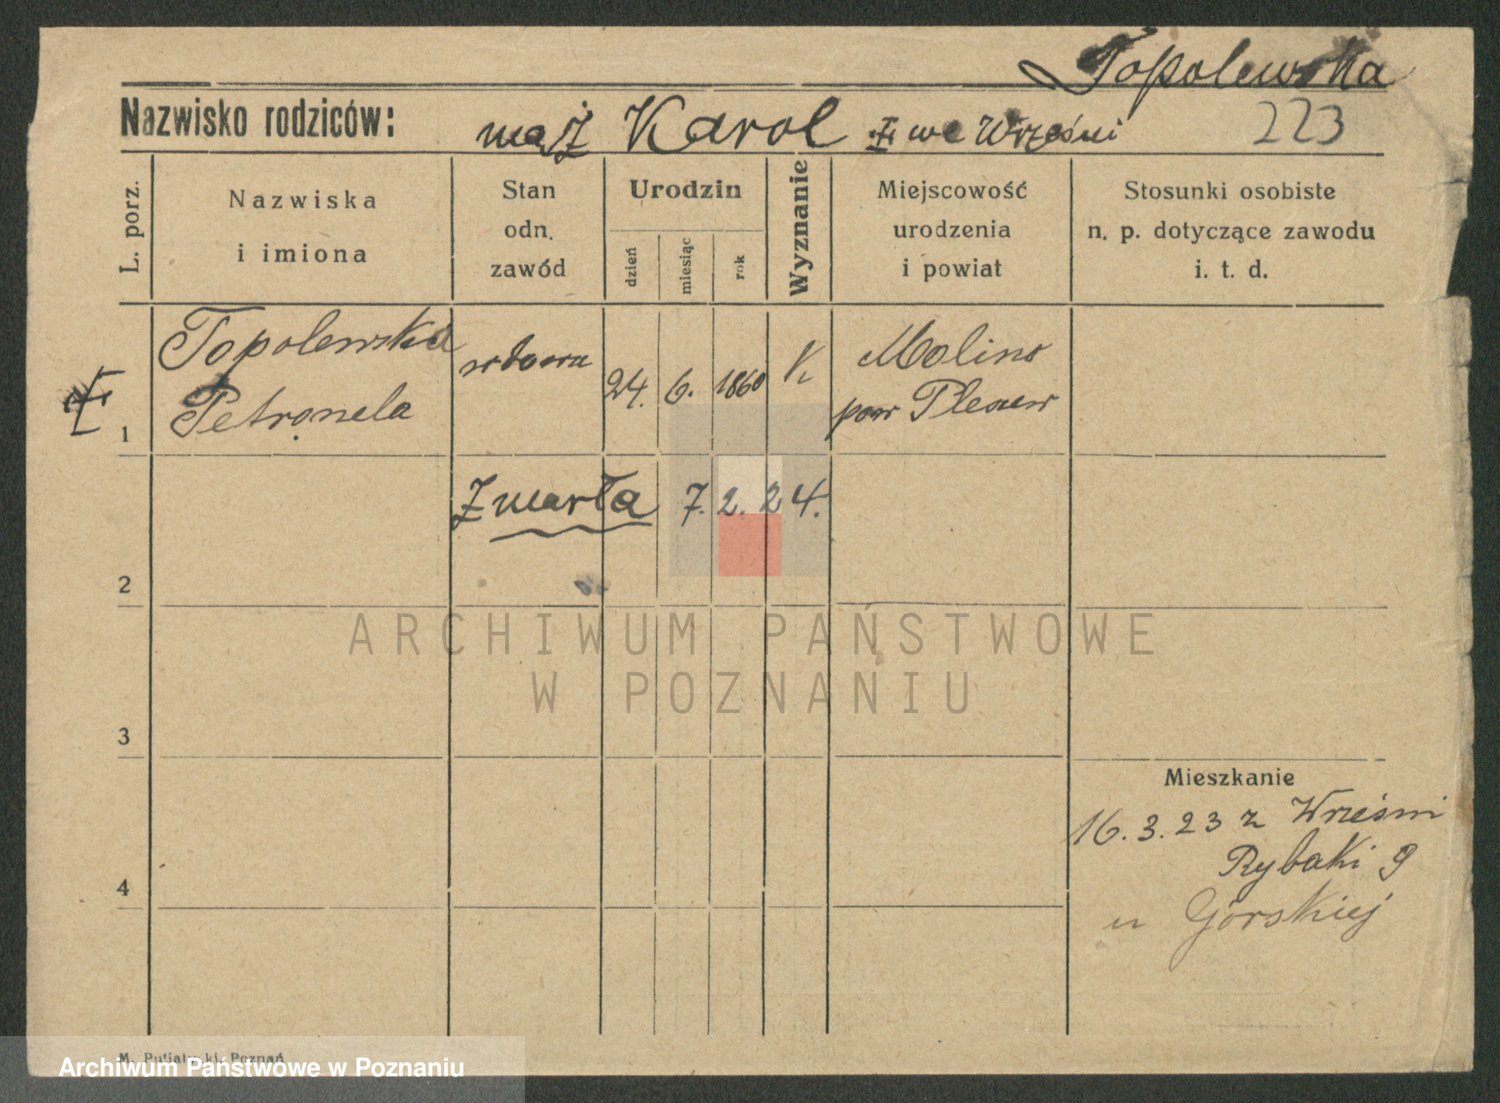 Topolewska
Nazwisko rodziców: mąż Karol ✝ we Wrześni 223
L. porz.
Nazwiska
i imiona
Stan
odn.
zawód
Urodzin
dzień
miesiąc
rok
Wyznanie
Miejscowość
urodzenia
i powiat
Stosunki osobiste
n. p. dotyczące zawodu
i. t. d.
Topolewska wdowa 24. 6. 1860 K
Petronela
1
Molino
pow Pleszew
Zmarła 7. 2. 24.
2
3
4
ARCHIWUM PAŃSTWOWE
W POZNANIU
Mieszkanie
16. 3. 23 z Wrześni
Rybaki 9
u Górskiej
Archiwum Państwowe w Poznaniu